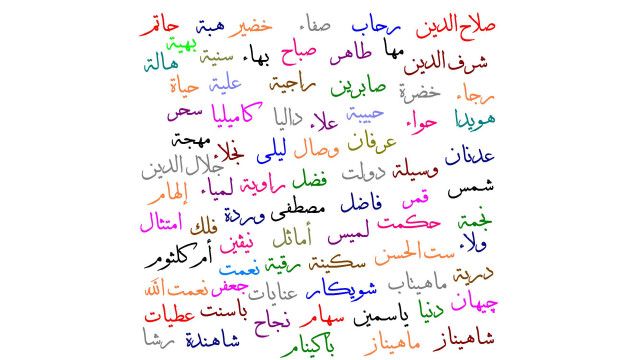 صلاح الدين رحاب صفاء خضير هبة حاتم
شرف الدين مها طاهر صباح بهاء سنية بهية هالة
رجاء خضرة صابرين راجية علية حياة
هويدا حواء حبيبة علاء داليا كاميليا سحر
عدنان عرفان وصال ليلى نجلاء مهجة
شمس وسيلة دولت فضل راوية لمياء جلال الدين إلهام
نجمة قمر فاضل مصطفى وردة فلك امتثال
ولاء حكمت لميس أماثل نيڤين أم كلثوم
درية ست الحسن سكينة رقية نعمت
چيهان ماهيناب شويكار عنايات جعفر نعمت الله
دنيا ياسمين سهام نجاح باسنت عطيات
شاهيناز ماهيناز باكينام شاهندة رشا